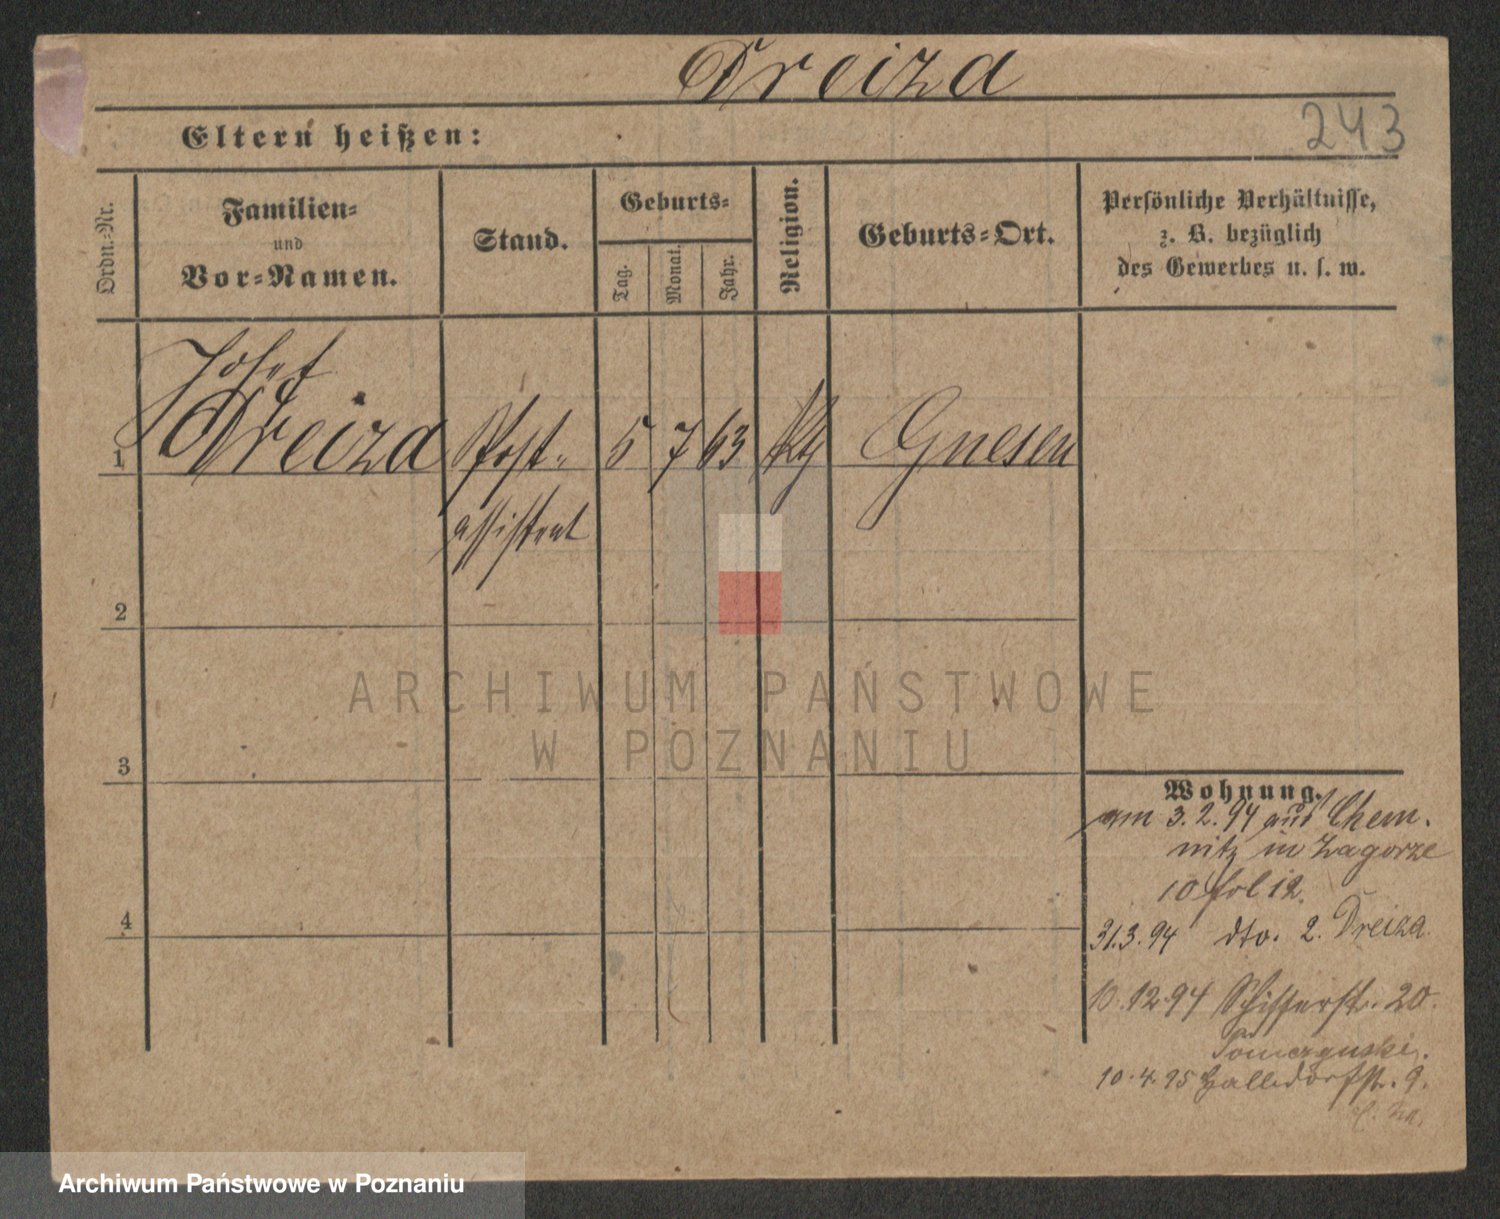 Dreiza
243
Eltern heißen:
Ordn.-Nr.
Familien-
und
Vor-Namen.
Stand.
Geburts-
Tag.
Monat.
Jahr.
Religion.
Geburts-Ort.
Persönliche Verhältnisse,
z. B. bezüglich
des Gewerbes u. s. w.
Josef
1 Dreiza Post- 5 7 63 Kth Gnesen
assistent
2
3
4
Wohnung.
am 3.2.94 aus Chem-
nitz in Zagorze
10 fol 12.
31.3.94 dto. 2. Dreiza
10.12.94 Schifferstr. 20.
10.4.95 Halldorfstr. 9.
ARCHIWUM PAŃSTWOWE
W POZNANIU
Archiwum Państwowe w Poznaniu